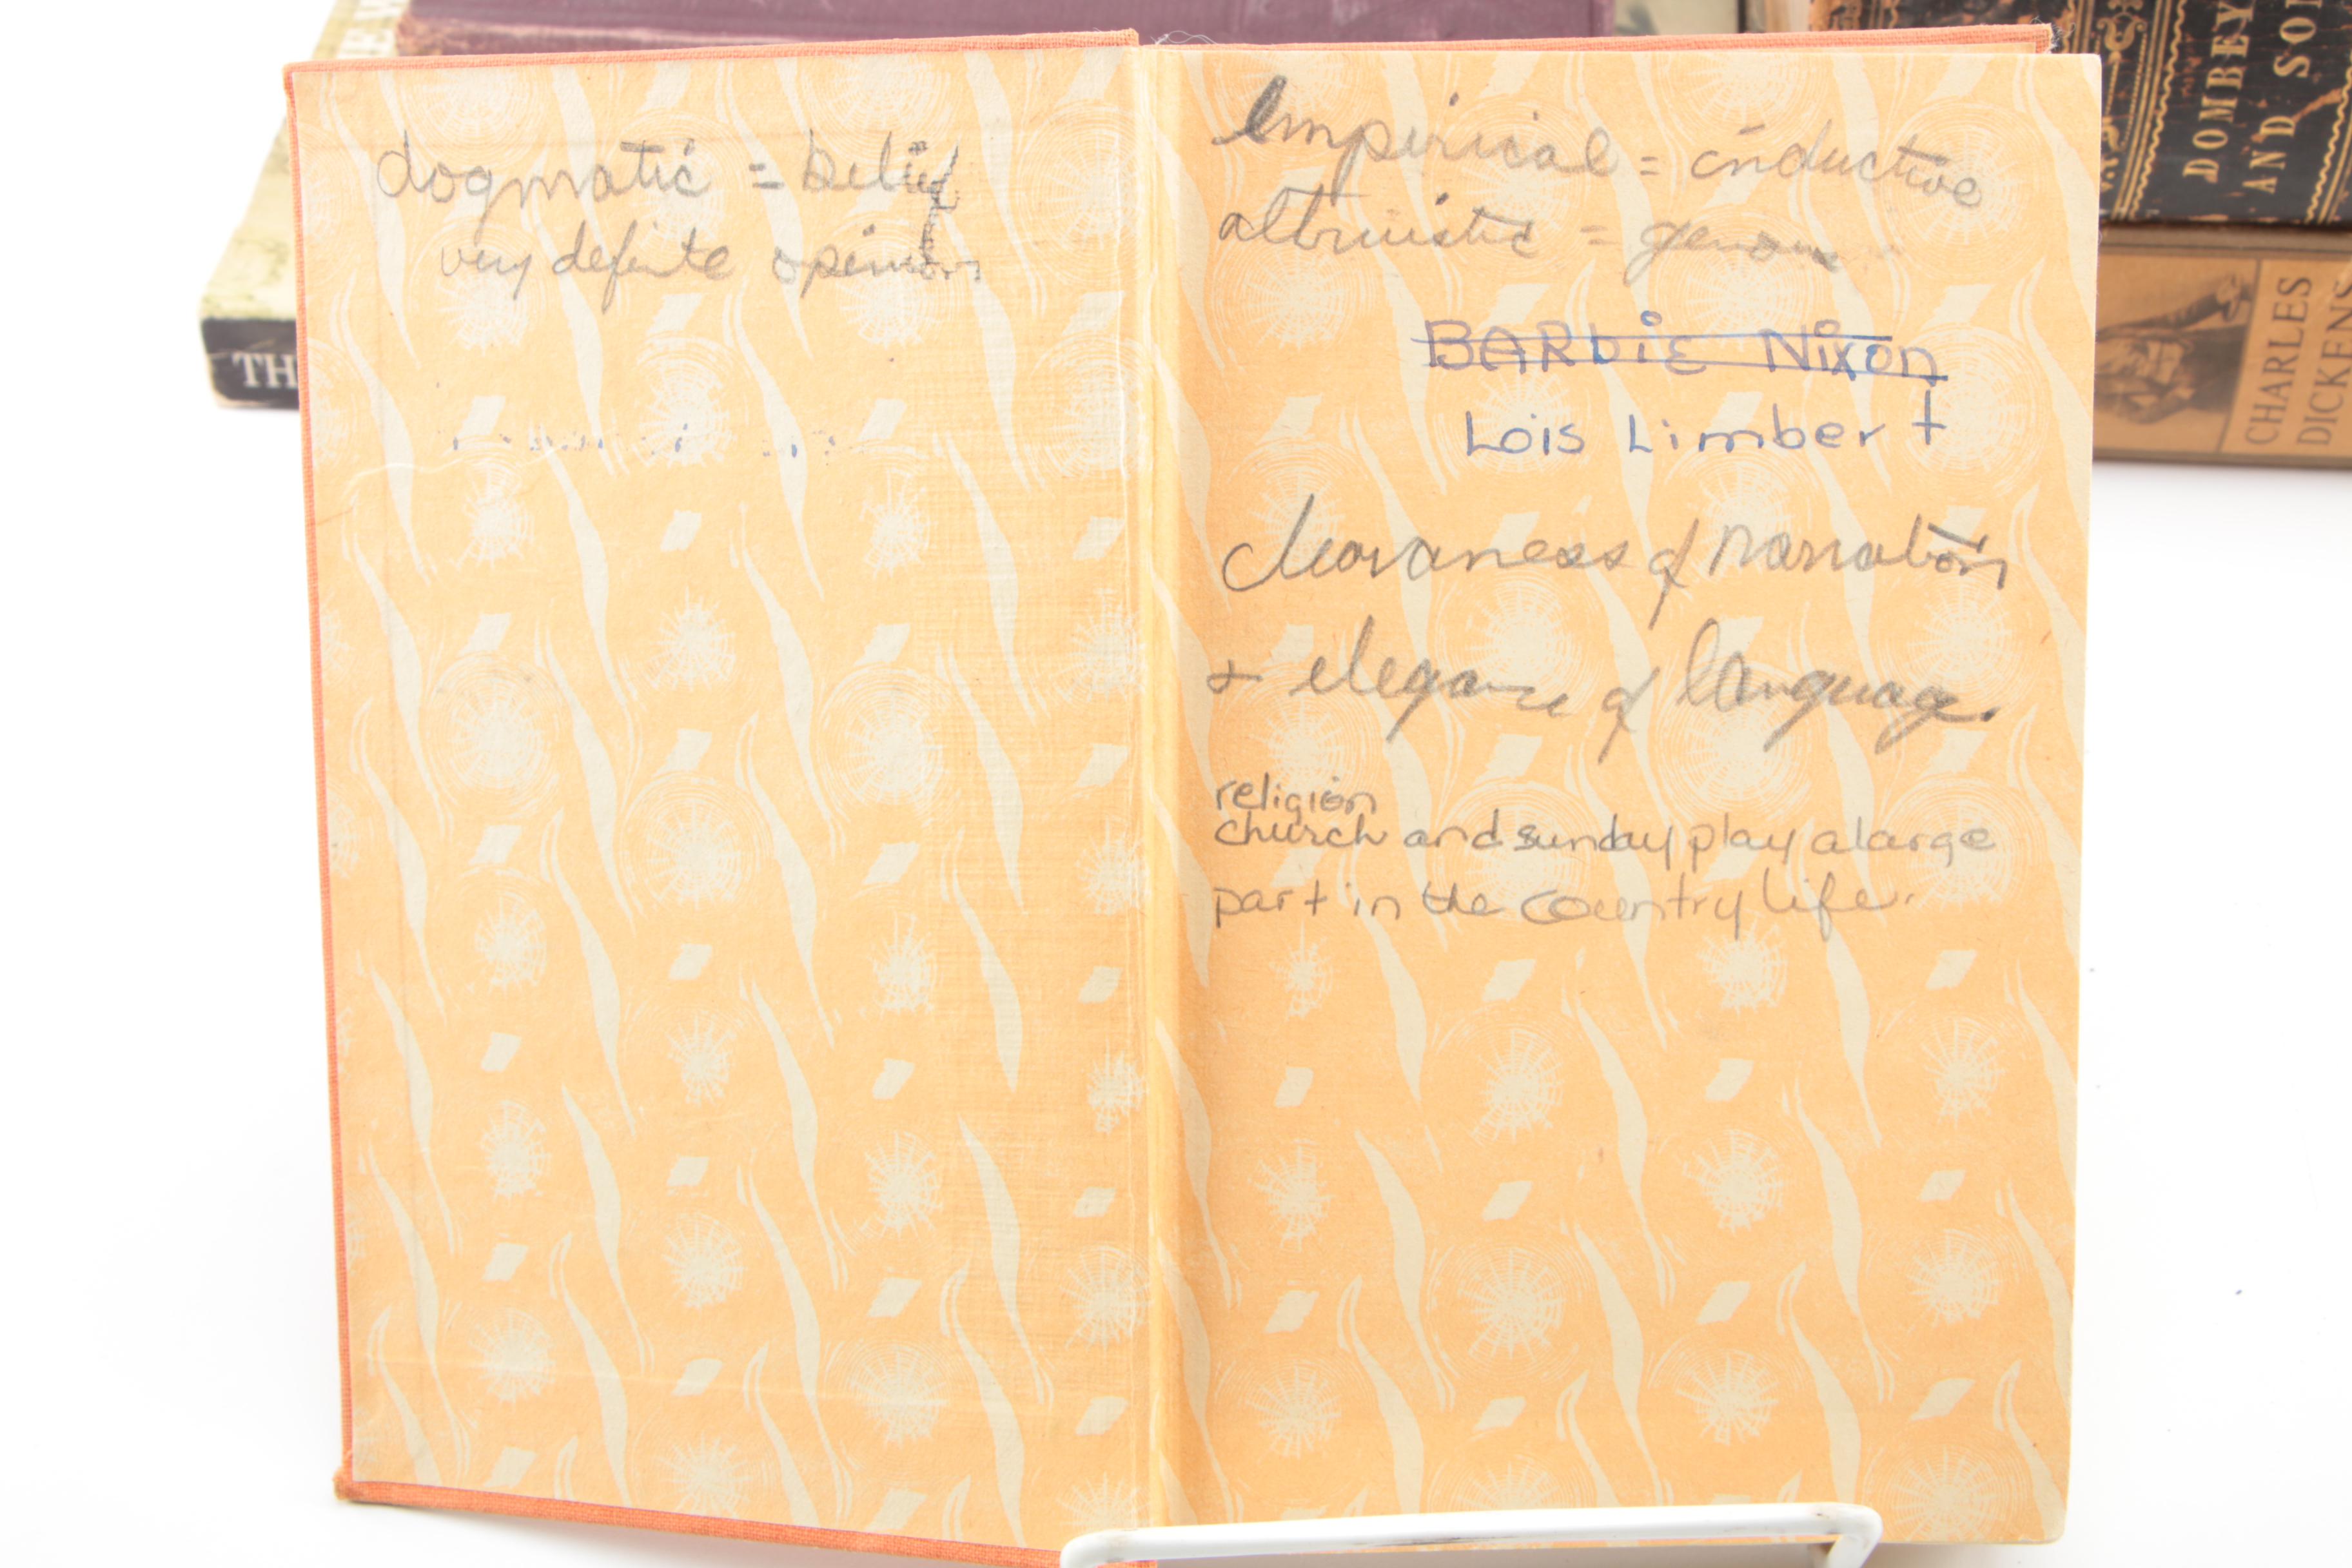 dogmatic = belief
very definite opinions
Empirical = inductive
altruistic = generous
BARbiE Nixon
Lois Limbert
clearaness of narration
+ elegance of language.
religion
church and sunday play a large
part in the country life.
TH
DOMBEY
AND SON
CHARLES
DICKENS